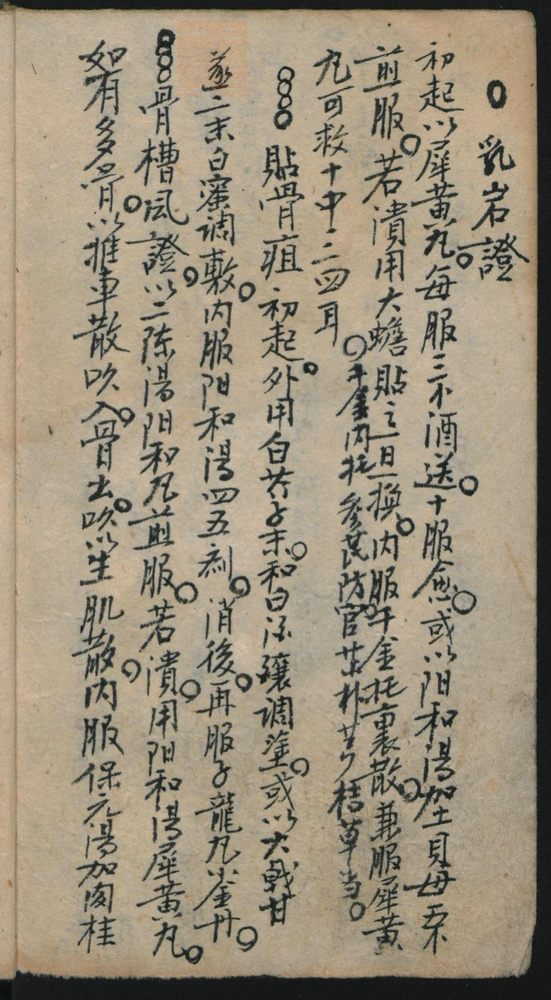 乳岩證
初起以犀黄丸每服三不酒送十服愈或以阳和湯加土貝母五不
煎服若潰用大蟾貼之一日一換内服千金托裏散兼服犀黄
丸可救十中三四耳 千金内托参芪防官芎朴芷桔草当
貼骨疽初起外用白芥子末和白酒釀調塗或以大戟甘
遂二末白蜜調敷内服阳和湯四五剂消後再服子龍丸小金丹
骨槽风證以二陈湯阳和丸煎服若潰用阳和湯犀黄丸
如有多骨以推車散吹入骨出吹以生肌散内服保元湯加肉桂